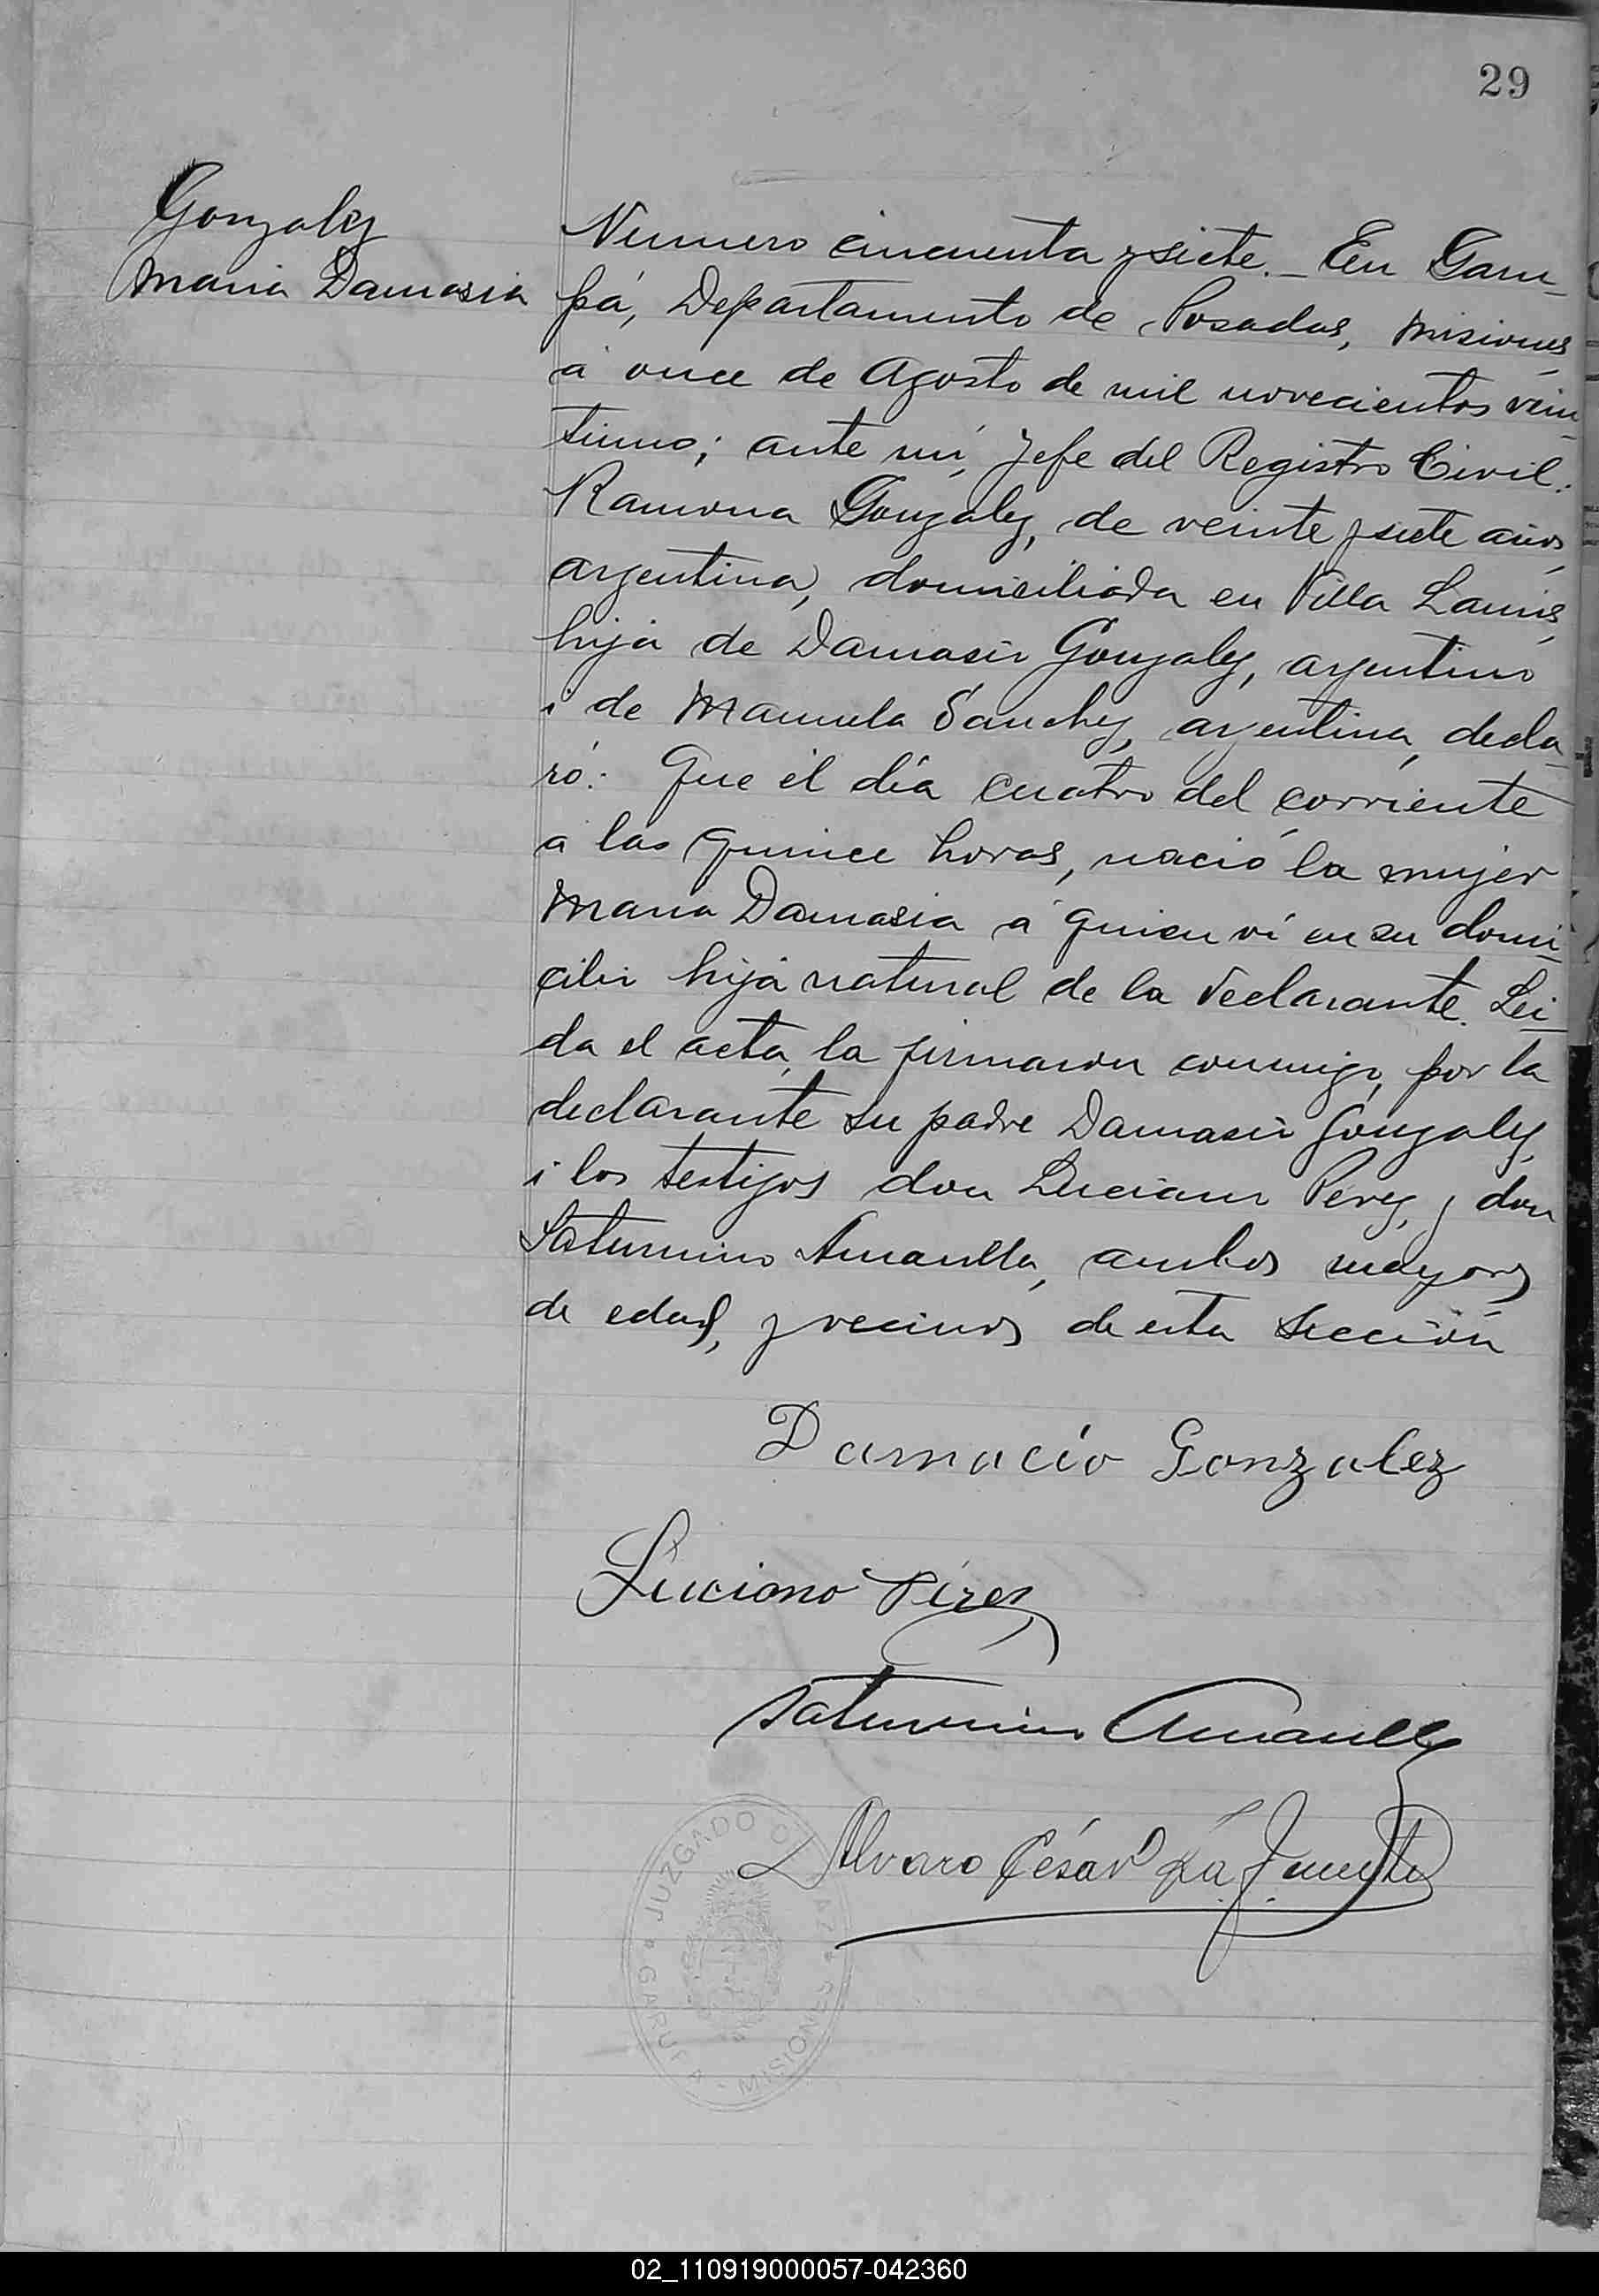 29
Gonzalez
Maria Damasia
Numero cincuenta y siete. _ En Garu-
pá, Departamento de Posadas, Misiones,
á once de Agosto de mil novecientos vein-
tiuno; ante mí, Jefe del Registro Civil:
Ramona Gonzalez, de veinte y siete años,
argentina, domiciliada en Villa Lanús,
hija de Damasio Gonzalez, argentino
i de Manuela Sanchez, argentina, decla-
ró: Que el día cuatro del corriente
a las quince horas, nació la mujer
Maria Damasia á quien ví en su domi-
cilio hija natural de la declarante. Lei-
da el acta, la firmaron conmigo, por la
declarante su padre Damasio Gonzalez,
i los testigos don Luciano Perez, y don
Saturnino Amarilla, ambos mayores
de edad, y vecinos de esta sección
Damacio Gonzalez
Luciano Pérez
Saturnino Amarilla
Alvaro César La Fuente
JUZGADO DE PAZ * MISIONES - GARUPA *
02_110919000057-042360